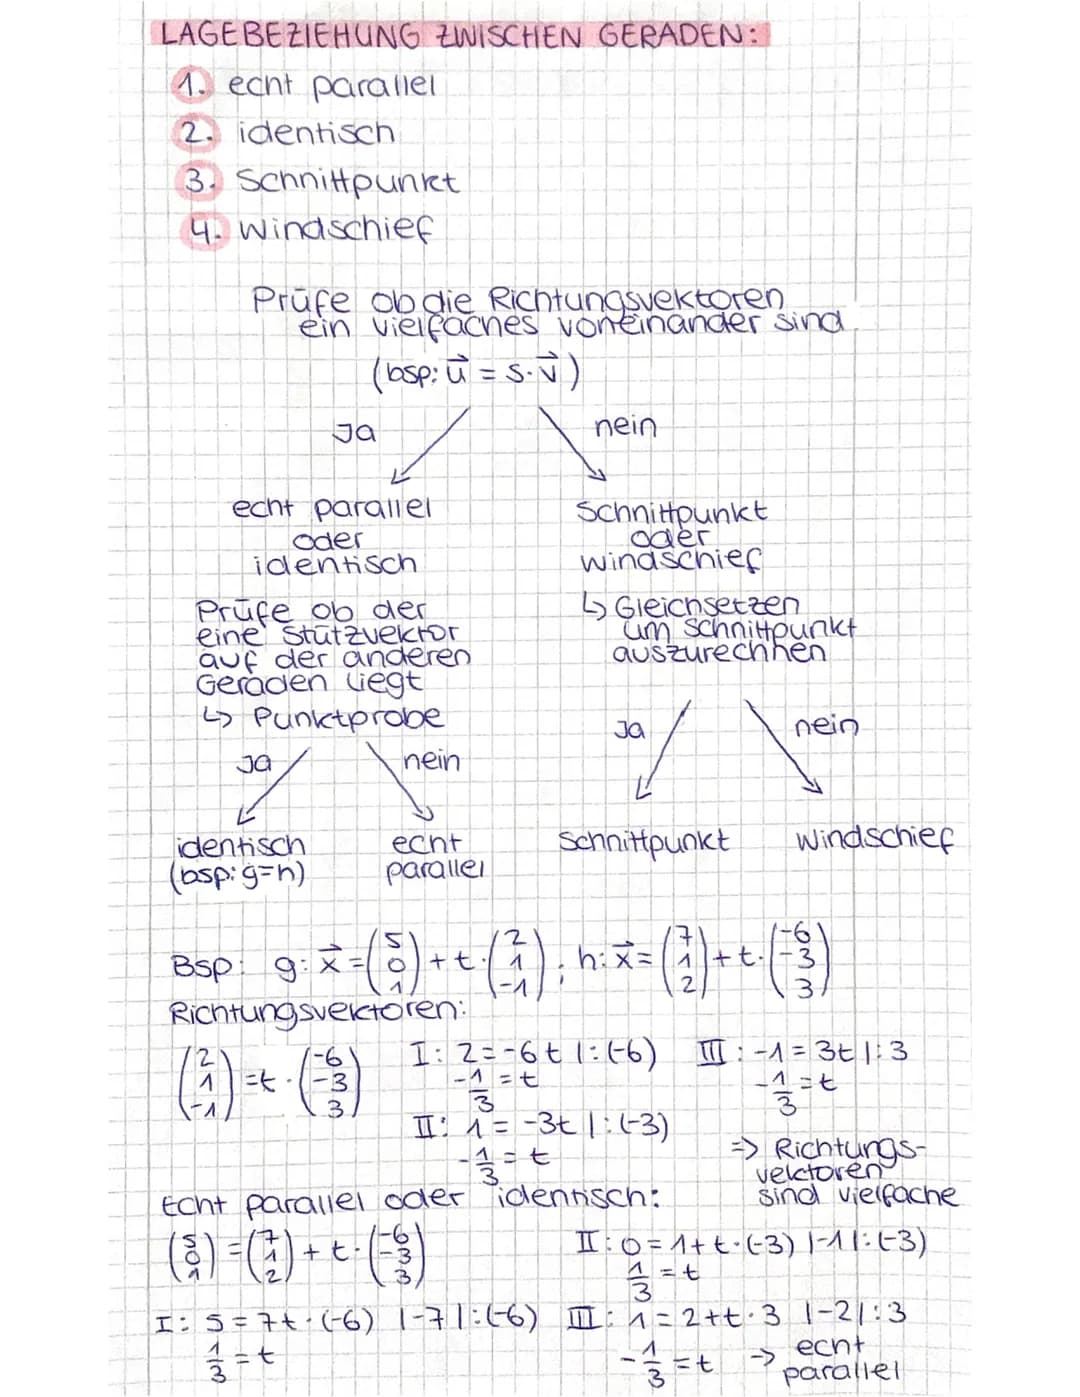 LAGEBEZIEHUNG ZWISCHEN GERADEN:
1. echt parallel
2. identisch
3. Schnittpunkt
4. Windschief
Prüfe ob die Richtungsvektoren
ein vielfaches voneinander sind
(bsp: u⃗ = s·v⃗)
Ja
nein
echt parallel
oder
identisch
Prüfe ob der
eine Stützvektor
auf der anderen
Geraden liegt
↳ Punktprobe
Ja
nein
identisch
(bsp: g=h)
echt
parallel
Schnittpunkt
oder
windschief
↳ Gleichsetzen
um schnittpunkt
auszurechnen
Ja
nein
Schnittpunkt
Windschief
Bsp: g: x⃗ = (5 0 1) + t·(2 1 -1); h: x⃗ = (7 1 2) + t·(-6 -3 3)
Richtungsvektoren:
(2 1 -1) = t·(-6 -3 3)
I: 2 = -6t |:(-6)
-1/3 = t
II: 1 = -3t |:(-3)
-1/3 = t
III: -1 = 3t |:3
-1/3 = t
=> Richtungs-
vektoren
sind vielfache
Echt parallel oder identisch:
(5 0 1) = (7 1 2) + t·(-6 -3 3)
I: 5 = 7t·(-6) |-7 |:(-6)
1/3 = t
II: 0 = 1+t·(-3) |-1 |:(-3)
1/3 = t
III: 1 = 2+t·3 |-2 |:3
-1/3 = t
-> echt
parallel